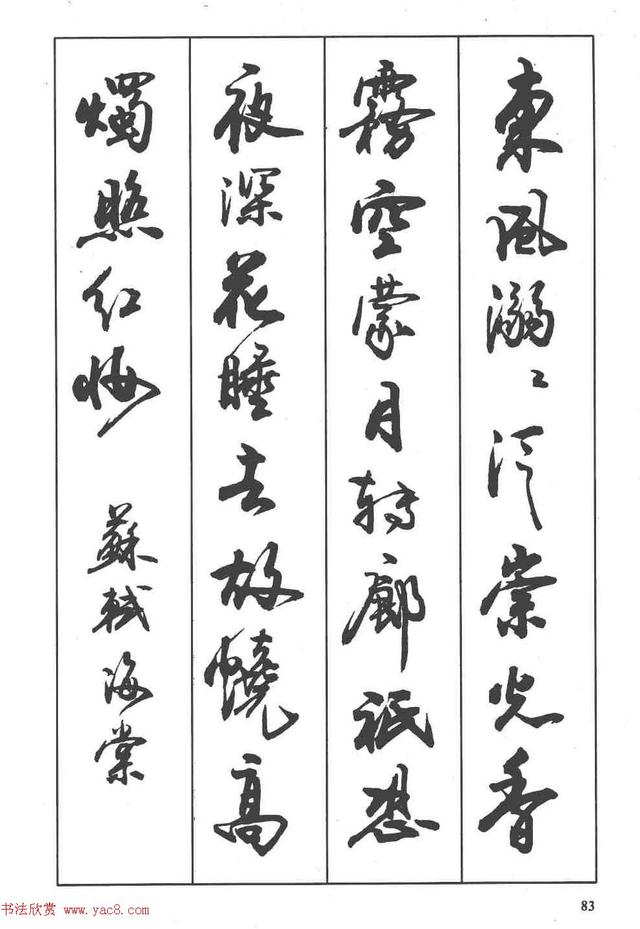 東風溺〻泛崇光香
霧空濛月轉廊祇恐
夜深花睡去故燒高
燭照紅妝 蘇軾海棠
83
书法欣赏 www.yac8.com